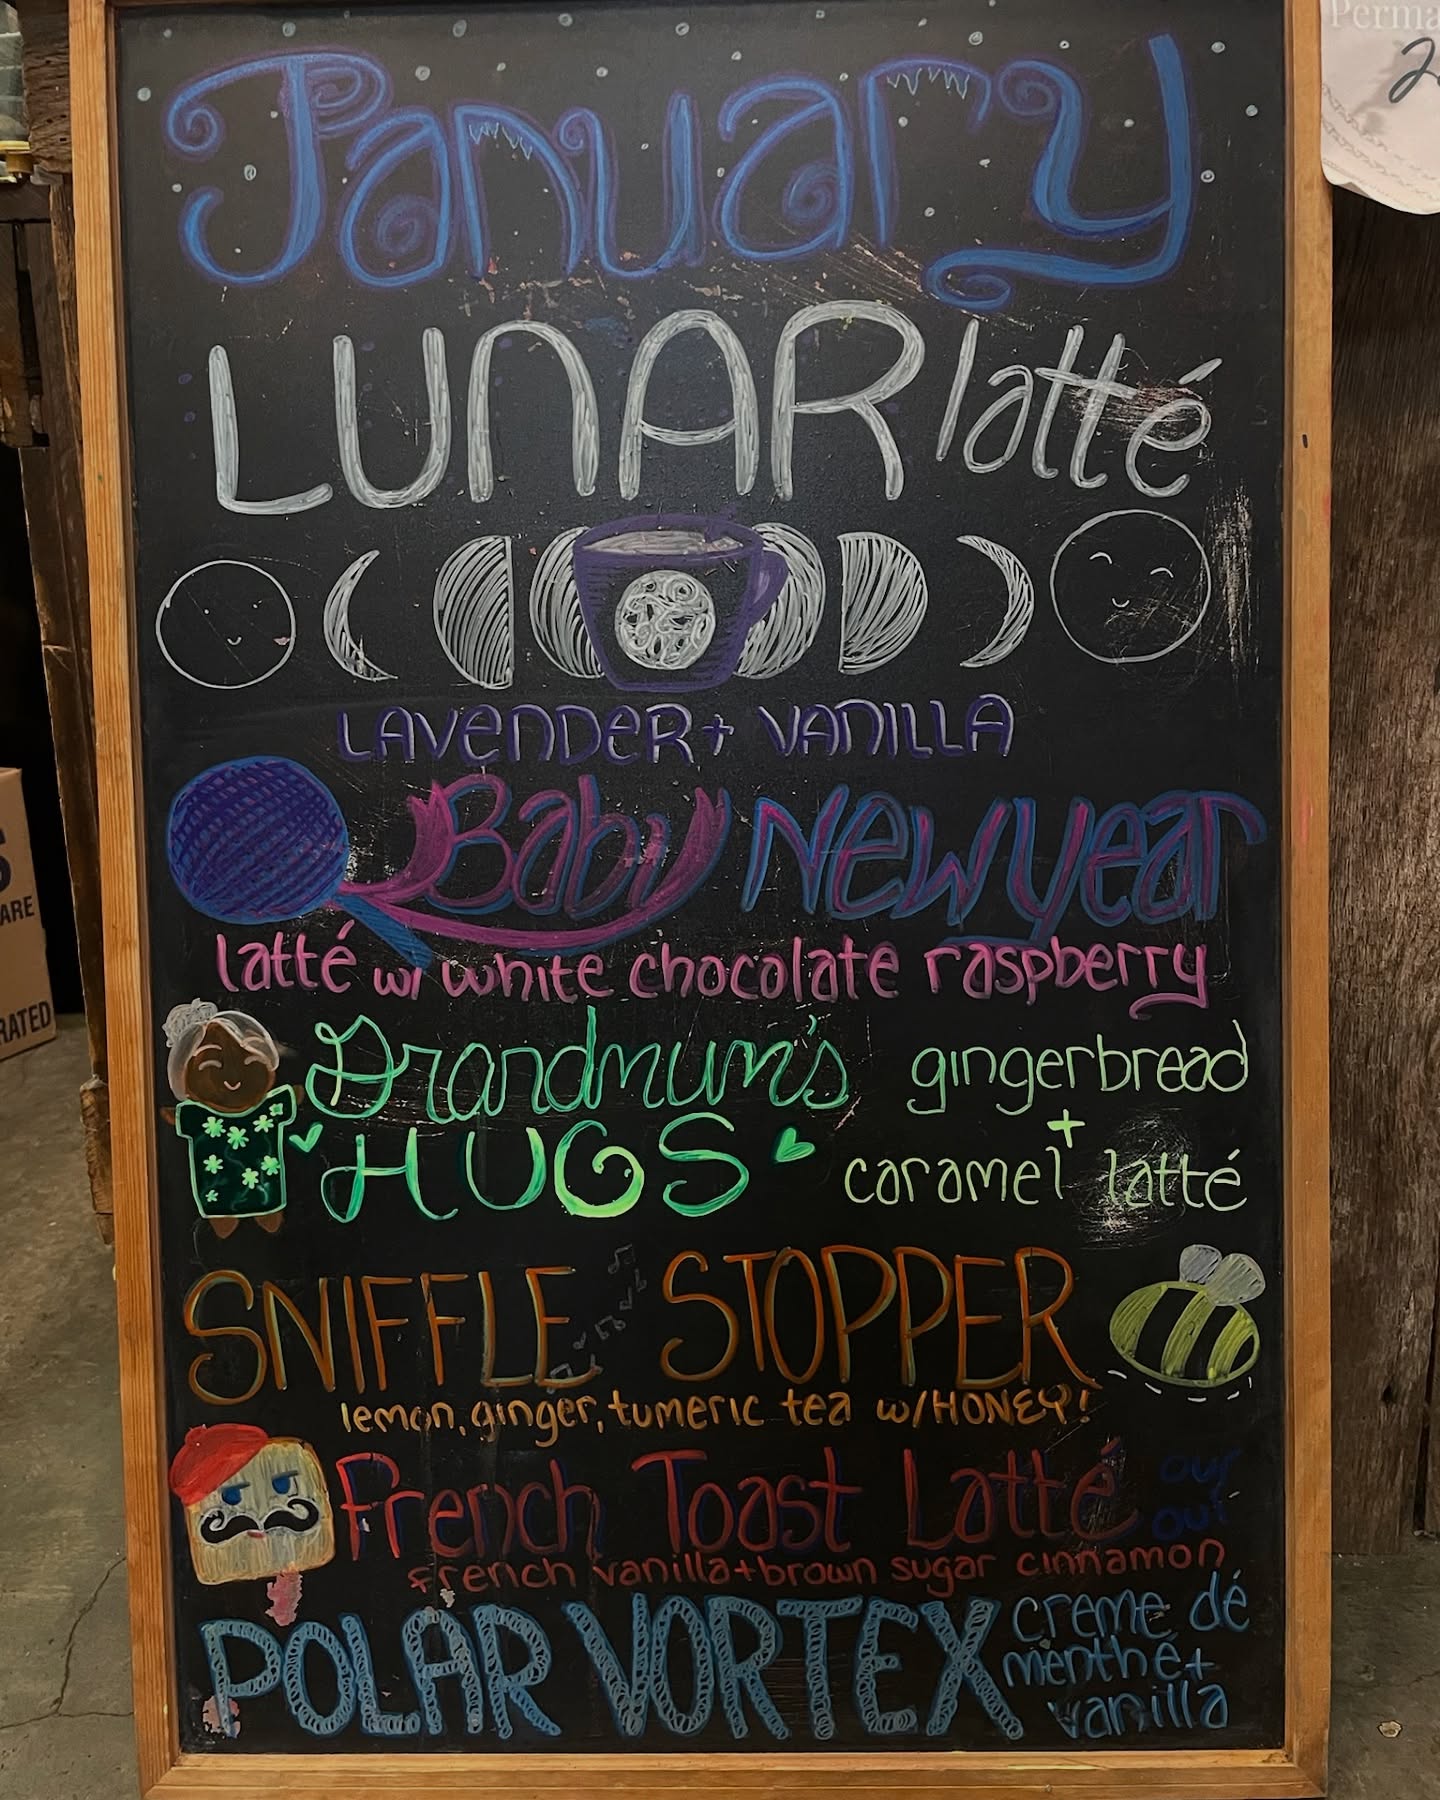 January
LUNAR latté
LAVENDER + VANILLA
Baby New year
latté w/ white chocolate raspberry
Grandmum's
HUGS
gingerbread
+
caramel latté
SNIFFLE STOPPER
lemon, ginger, tumeric tea w/ HONEY!
French Toast Latté
oui
oui
french vanilla + brown sugar cinnamon
POLAR VORTEX
creme dé
menthe +
vanilla
Perma
S
ARE
RATED